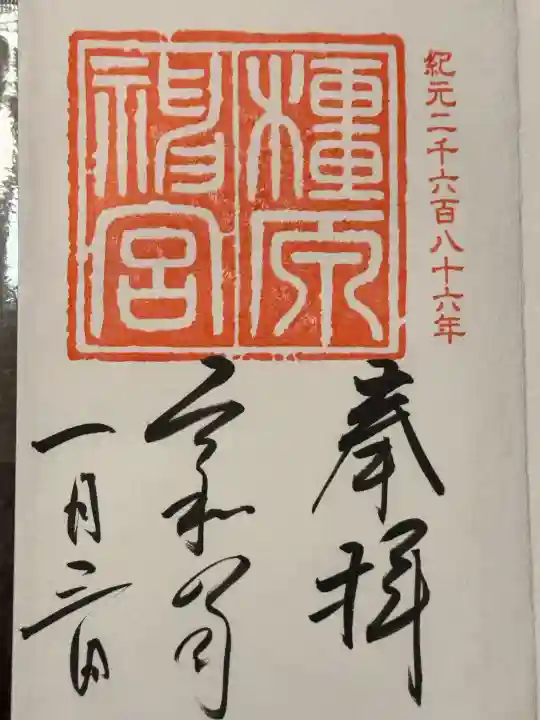 紀元二千六百八十六年
橿原
神宮
奉拝
令和八年
一月三日